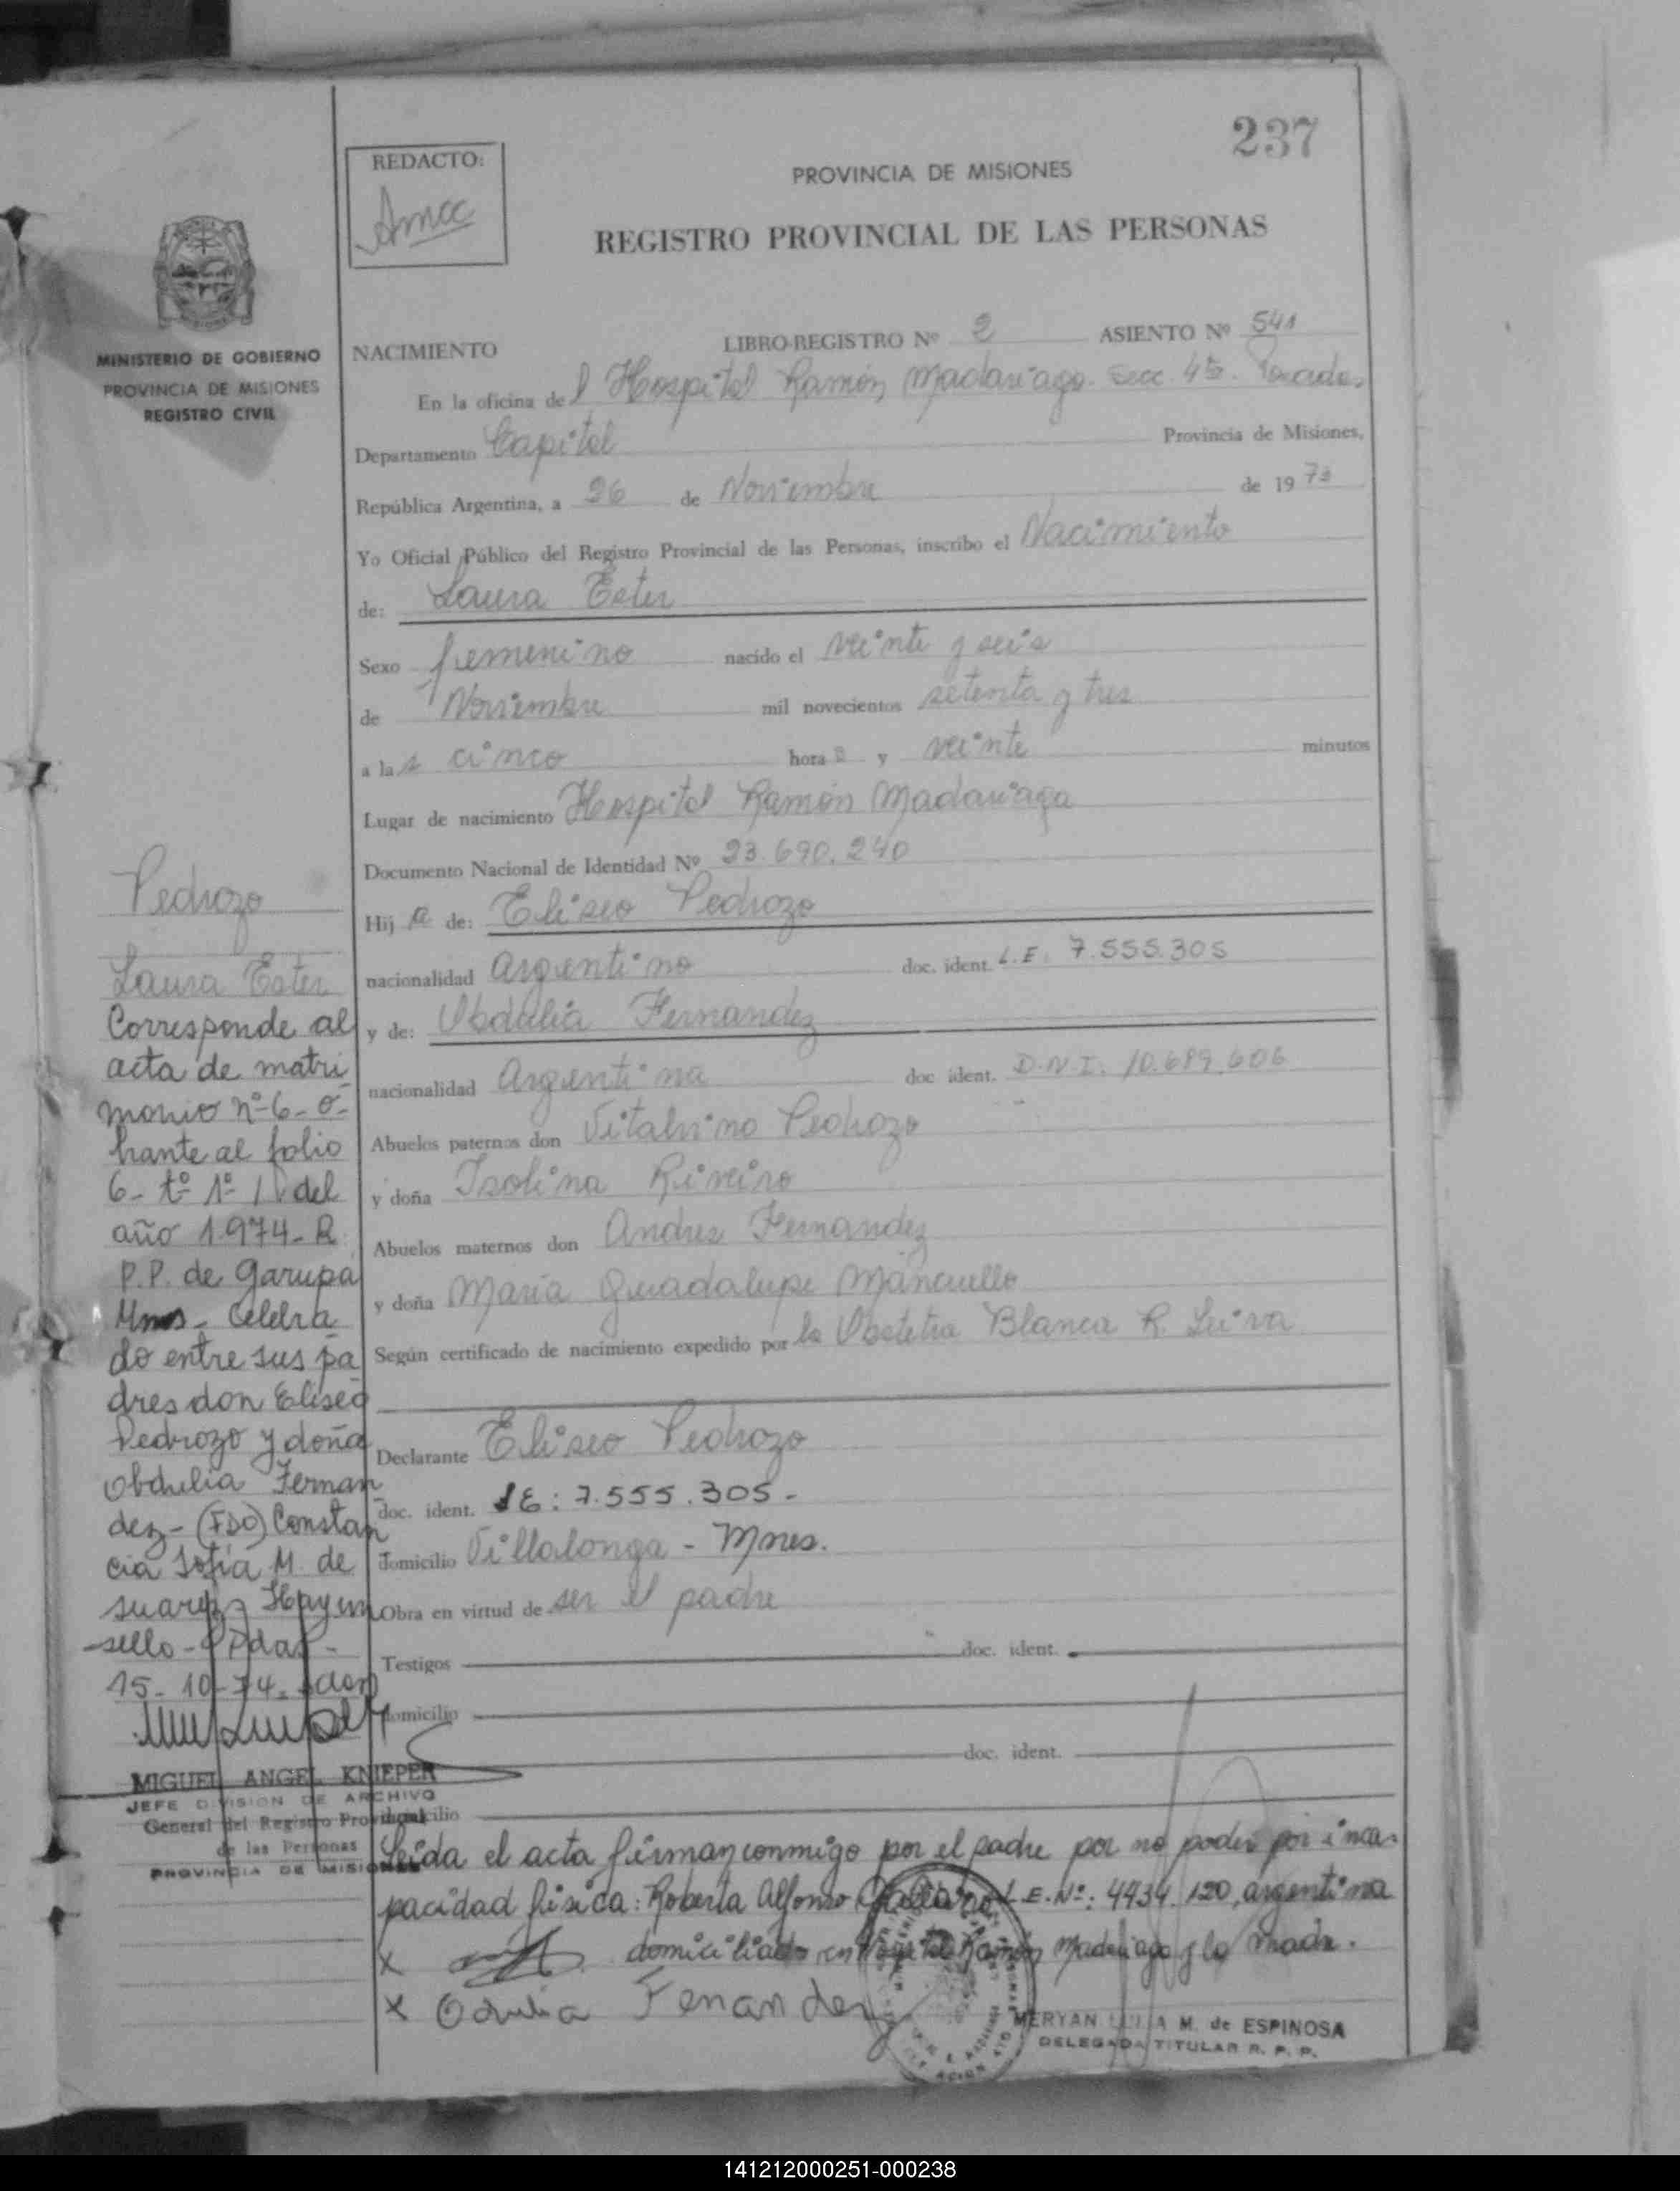 237
REDACTO:
PROVINCIA DE MISIONES
REGISTRO PROVINCIAL DE LAS PERSONAS
MINISTERIO DE GOBIERNO
PROVINCIA DE MISIONES
REGISTRO CIVIL
NACIMIENTO LIBRO-REGISTRO Nº 2 ASIENTO Nº 541
En la oficina del Hospital Ramón Madariaga. Secc. 4ta. Posadas
Departamento Capital Provincia de Misiones,
República Argentina, a 26 de Noviembre de 1973
Yo Oficial Público del Registro Provincial de las Personas, inscribo el Nacimiento
de: Laura Ester
Sexo femenino nacido el veinte y seis
de Noviembre mil novecientos setenta y tres
a las cinco horas y veinte minutos
Lugar de nacimiento Hospital Ramón Madariaga
Documento Nacional de Identidad Nº 23.690.240
Hija de: Eliseo Pedrozo
nacionalidad argentino doc. ident. L.E. 7.555.305
y de: Obdulia Fernandez
nacionalidad Argentina doc ident. D.N.I. 10.689.606
Abuelos paternos don Vitalvino Pedrozo
y doña Isolina Riveiro
Abuelos maternos don Andres Fernandez
y doña María Guadalupe Mancuello
Según certificado de nacimiento expedido por la Obstetra Blanca R. Leiva
Declarante Eliseo Pedrozo
doc. ident. LE: 7.555.305.-
domicilio Villalonga - Mnes.
Obra en virtud de ser el padre
Testigos doc. ident.
domicilio
doc. ident.
domicilio
Leida el acta firman conmigo por el padre por no poder por inca-
pacidad fisica: Roberta Alfonso L.E. Nº: 4434.120, argentina
x domiciliado en Hospital Ramón Madariaga y la madre.
x Odulia Fenandez
MERYAN M. de ESPINOSA
DELEGADA TITULAR R. P. P.
Pedrozo
Laura Ester
Corresponde al
acta de matri
monio nº 6- o-
brante al folio
6- tº 1º del
año 1.974- R.
P.P. de Garupa
Mnes- Celebra
do entre sus pa
dres don Eliseo
Pedrozo y doña
Obdulia Fernan
dez- (FDO) Constan
cia Sofía M. de
Suarez- Hay un
sello- Pdas-
15-10-74.
MIGUEL ANGEL KNIEPER
JEFE DIVISION DE ARCHIVO
General del Registro Provincial
de las Personas
PROVINCIA DE MISIONES
141212000251-000238